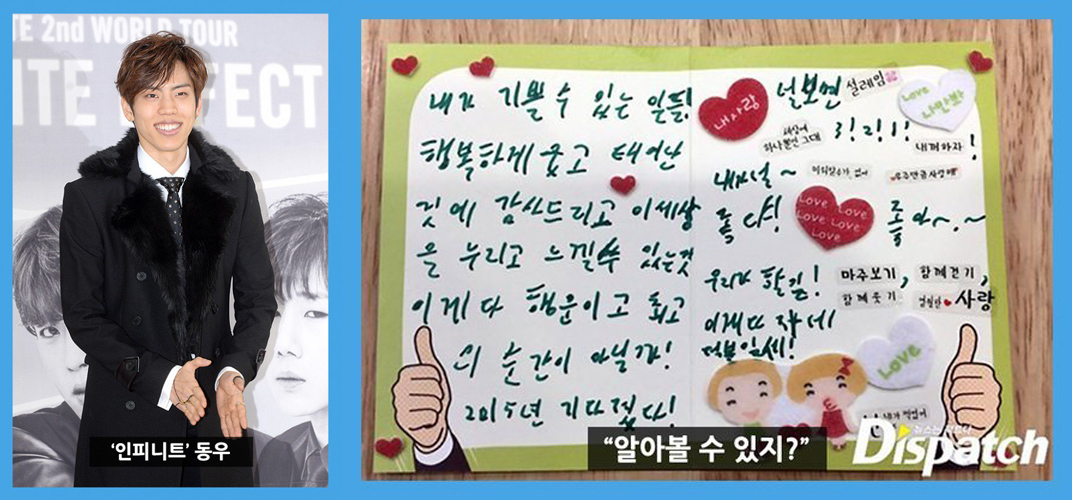 TE 2nd WORLD TOUR
ITE EFFECT
'인피니트' 동우
내가 기쁠 수 있는 일들!
행복하게 웃고 태어난
것에 감사드리고 이세상
을 누리고 느낄수 있는것
이게 다 행운이고 최고
의 순간이 아닐까!
2015년 기다렸다!
내사랑
널보면 설레임
Love
세상에
하나뿐인 그대
3! 2! 1!
내꺼하자!
내사널~
좋다!
Love Love
Love Love
Love
좋아~~
우리가 할일!
마주보기, 함께걷기,
함께웃기, 사랑
이게다 자네
덕분일세!
Love
"알아볼 수 있지?"
뉴스는 팩트다
Dispatch